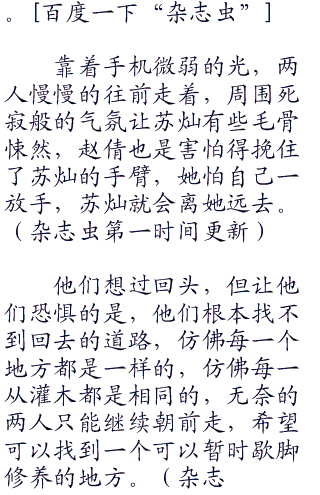 。[百度一下“杂志虫”]
靠着手机微弱的光，两
人慢慢的往前走着，周围死
寂般的气氛让苏灿有些毛骨
悚然，赵倩也是害怕得挽住
了苏灿的手臂，她怕自己一
放手，苏灿就会离她远去。
（杂志虫第一时间更新）
他们想过回头，但让他
们恐惧的是，他们根本找不
到回去的道路，仿佛每一个
地方都是一样的，仿佛每一
从灌木都是相同的，无奈的
两人只能继续朝前走，希望
可以找到一个可以暂时歇脚
修养的地方。（杂志